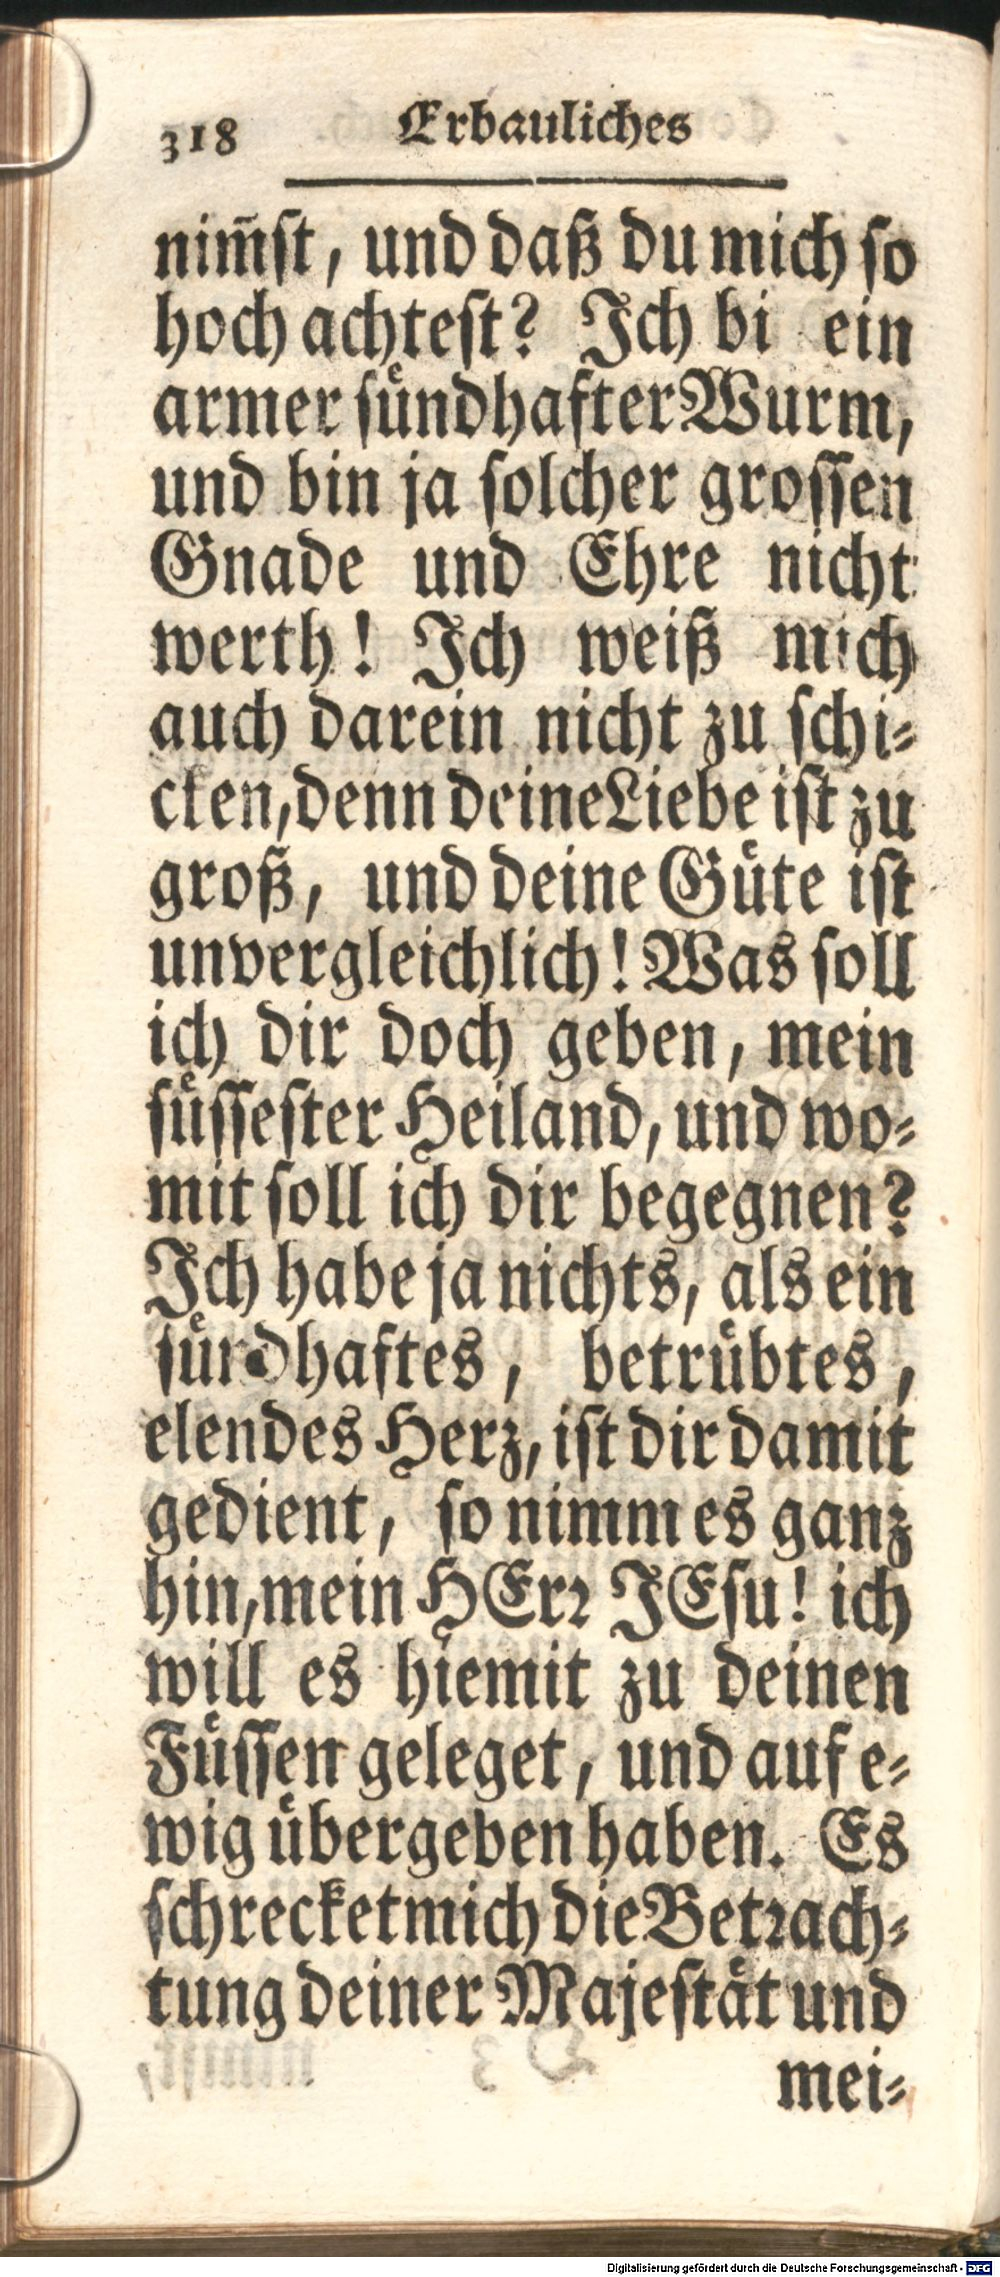 318 Erbauliches
nim̃st, und daß du mich so
hoch achtest? Ich bi ein
armer suͤndhafter Wurm,
und bin ja solcher grossen
Gnade und Ehre nicht
werth! Ich weiß mich
auch darein nicht zu schi-
cken, denn deine Liebe ist zu
groß, und deine Guͤte ist
unvergleichlich! Was soll
ich dir doch geben, mein
suͤssester Heiland, und wo-
mit soll ich dir begegnen?
Ich habe ja nichts, als ein
suͤndhaftes, betruͤbtes,
elendes Herz, ist dir damit
gedient, so nimm es ganz
hin, mein HErr JEsu! ich
will es hiemit zu deinen
Fuͤssen geleget, und auf e-
wig uͤbergeben haben. Es
schrecket mich die Betrach-
tung deiner Majestaͤt und
mei-
Digitalisierung gefördert durch die Deutsche Forschungsgemeinschaft - DFG